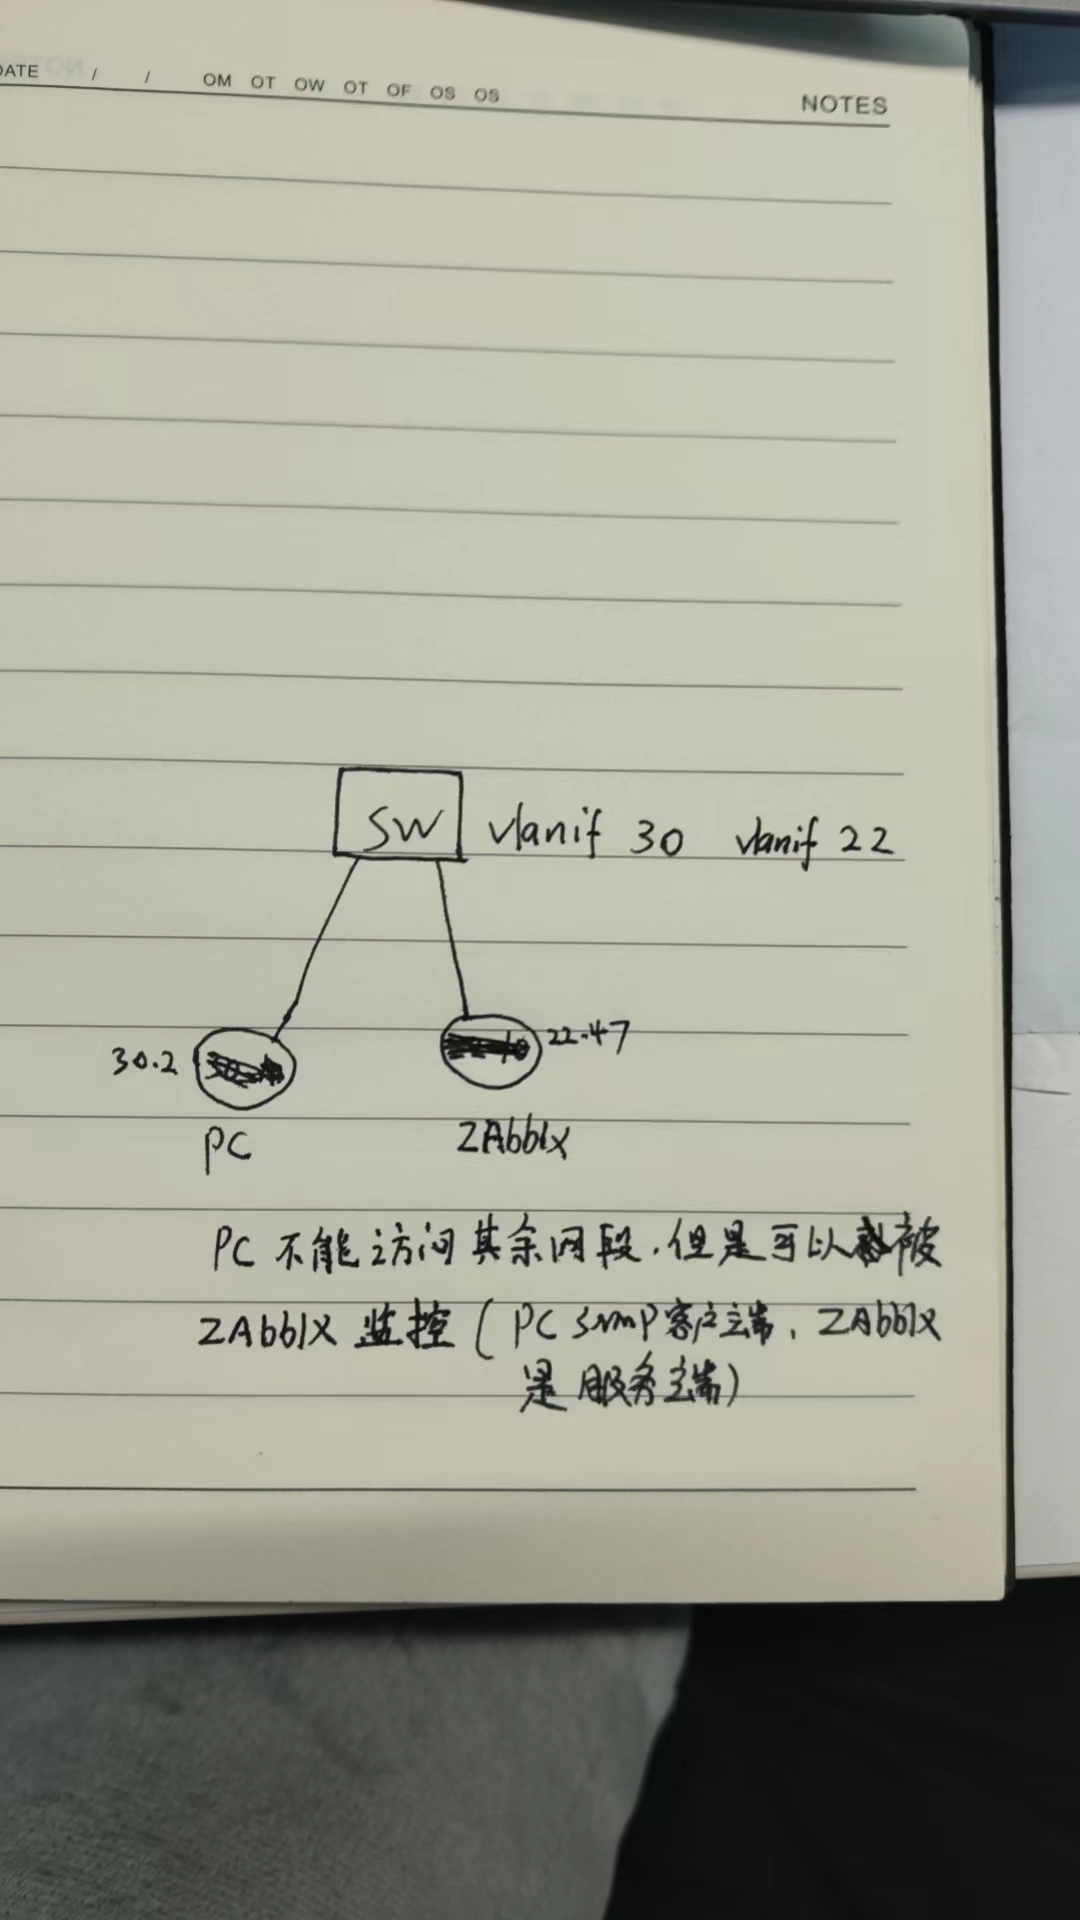 DATE / / OM OT OW OT OF OS OS NOTES
SW vlanif 30 vlanif 22
30.2 22.47
PC ZAbbIX
PC 不能访问其余网段,但是可以被
ZAbbIX 监控(PC snmp客户端,ZAbbIX
是服务端)